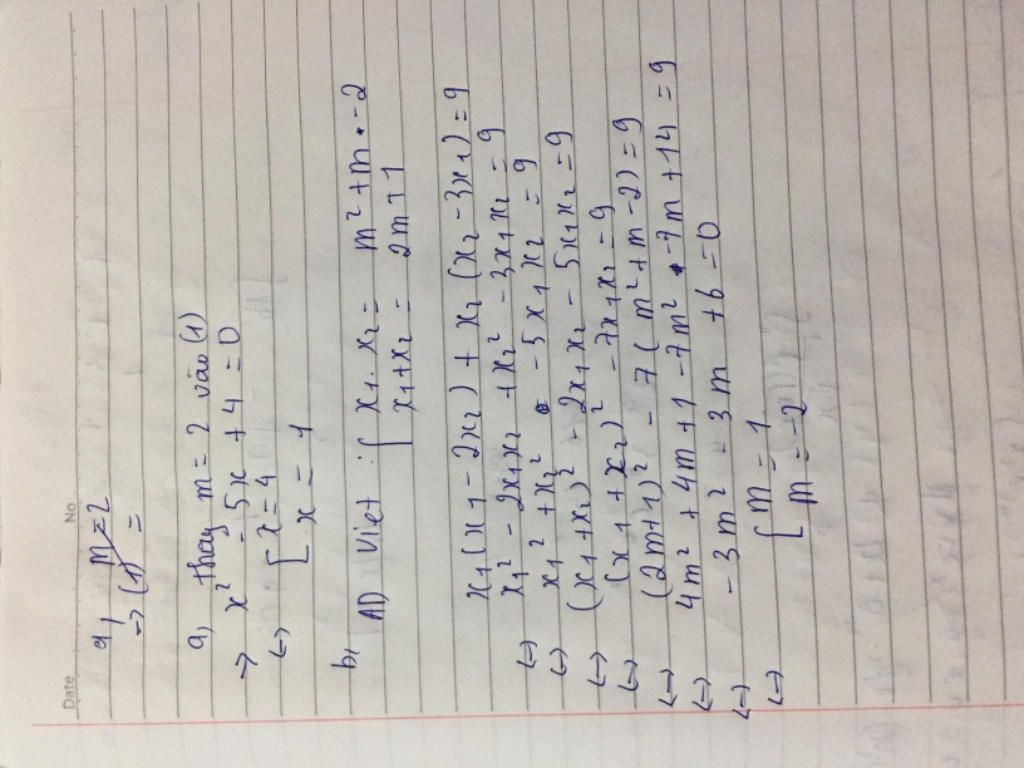 Date No
a, m = 2
→ (1) =
a, thay m = 2 vào (1)
→ x² - 5x + 4 = 0
↔ [ x = 4
x = 1
b, AD Viet : { x₁ . x₂ = m² + m - 2
x₁ + x₂ = 2m + 1
x₁(x₁ - 2x₂) + x₂(x₂ - 3x₁) = 9
↔ x₁² - 2x₁x₂ + x₂² - 3x₁x₂ = 9
↔ x₁² + x₂² - 5x₁x₂ = 9
↔ (x₁ + x₂)² - 2x₁x₂ - 5x₁x₂ = 9
↔ (x₁ + x₂)² - 7x₁x₂ = 9
↔ (2m+1)² - 7(m² + m - 2) = 9
↔ 4m² + 4m + 1 - 7m² - 7m + 14 = 9
↔ - 3m² - 3m + 6 = 0
↔ [ m = 1
m = -2